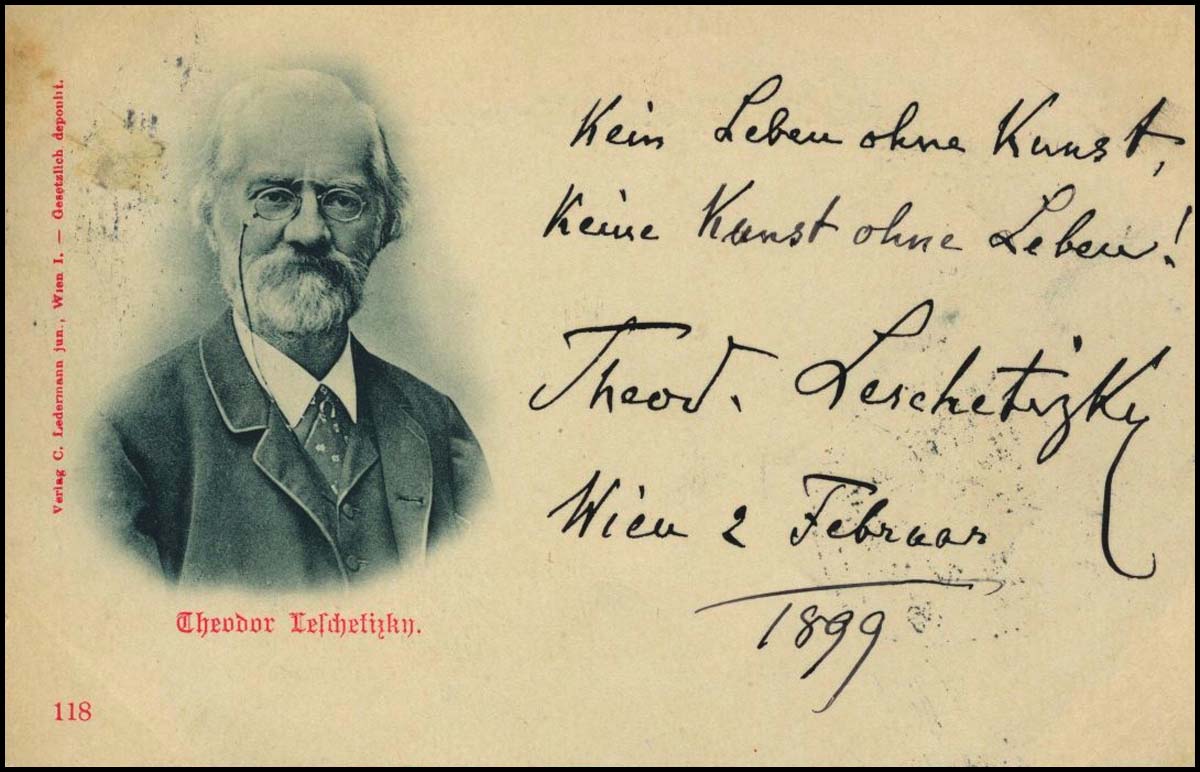 Verlag C. Ledermann jun., Wien I. — Gesetzlich deponirt.
Kein Leben ohne Kunst,
Keine Kunst ohne Leben!
Theod. Leschetizky
Wien 2 Februar
1899
Theodor Leſchetizky.
118